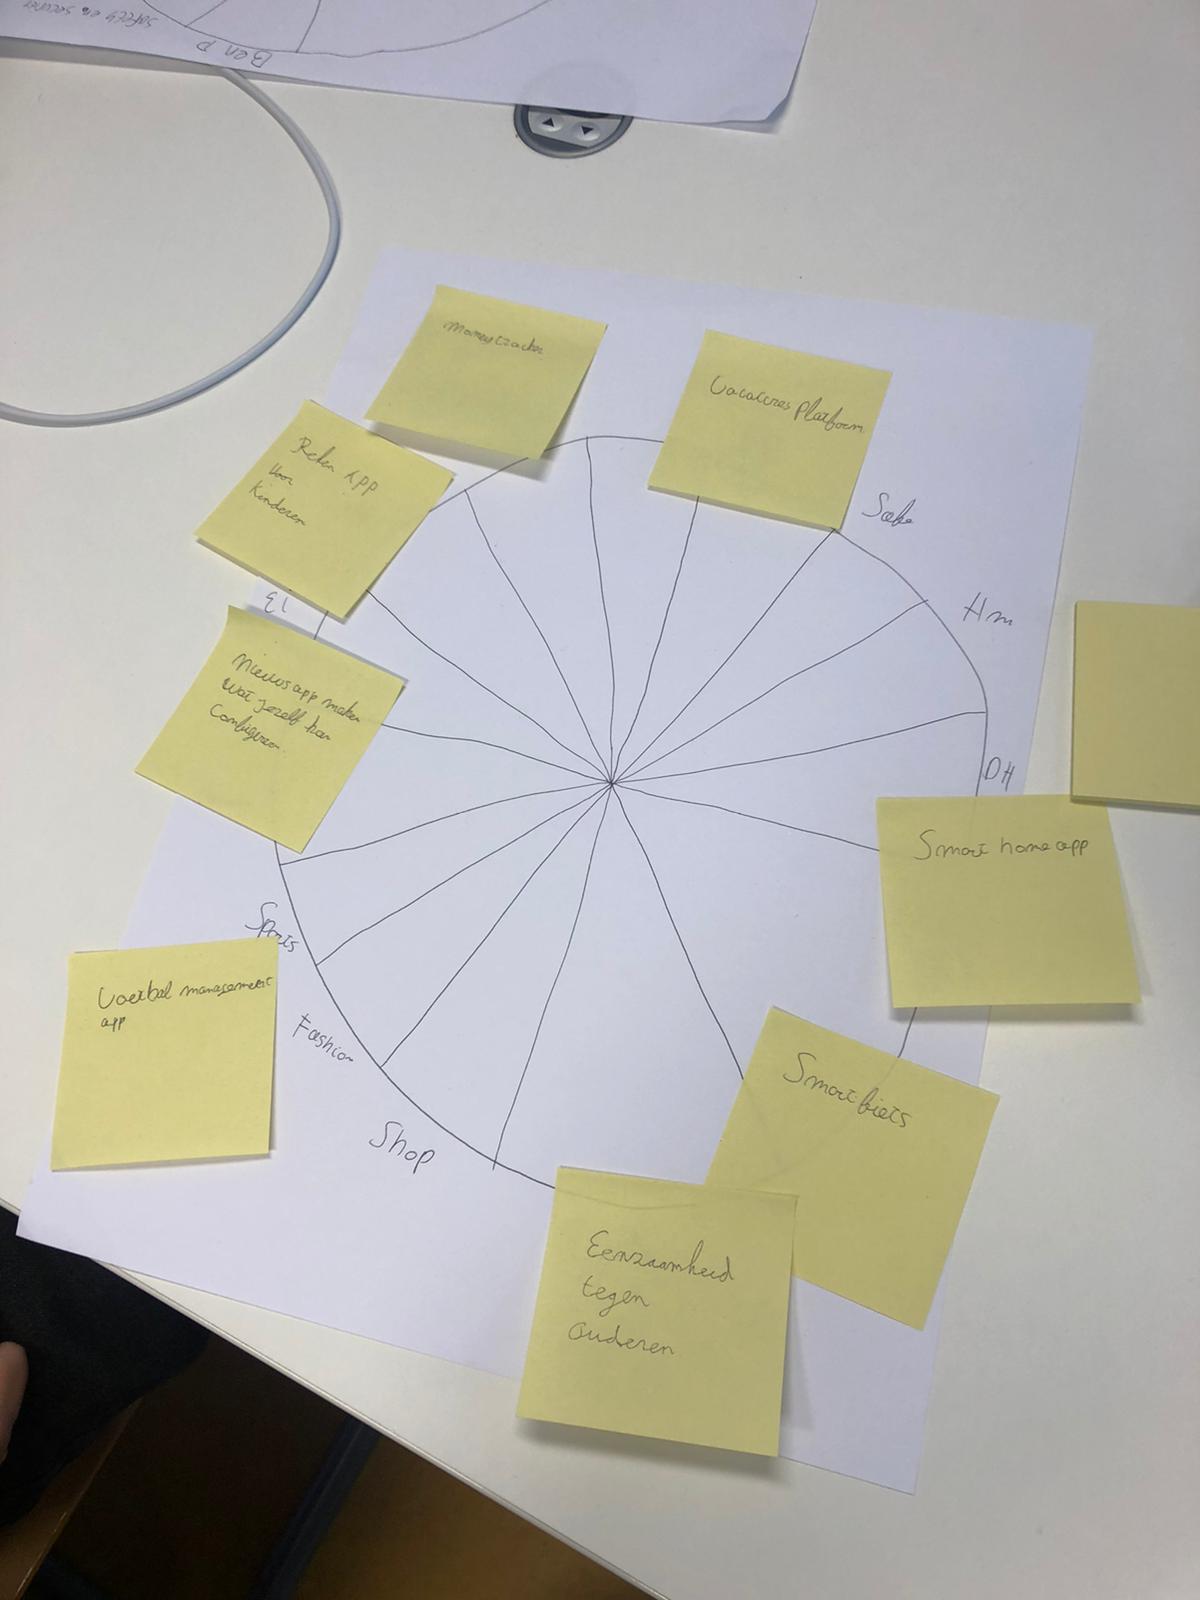 safety en secure
Ben P
Moneytracker
Vacatures Platform
Reken App
voor
Kinderen
Safe
Hm
Nieuws app maken
wat jezelf kan
Configeren
DH
Smart home app
Sports
Voetbal management
app
Fashion
Smart fiets
Shop
Eenzaamheid
tegen
ouderen